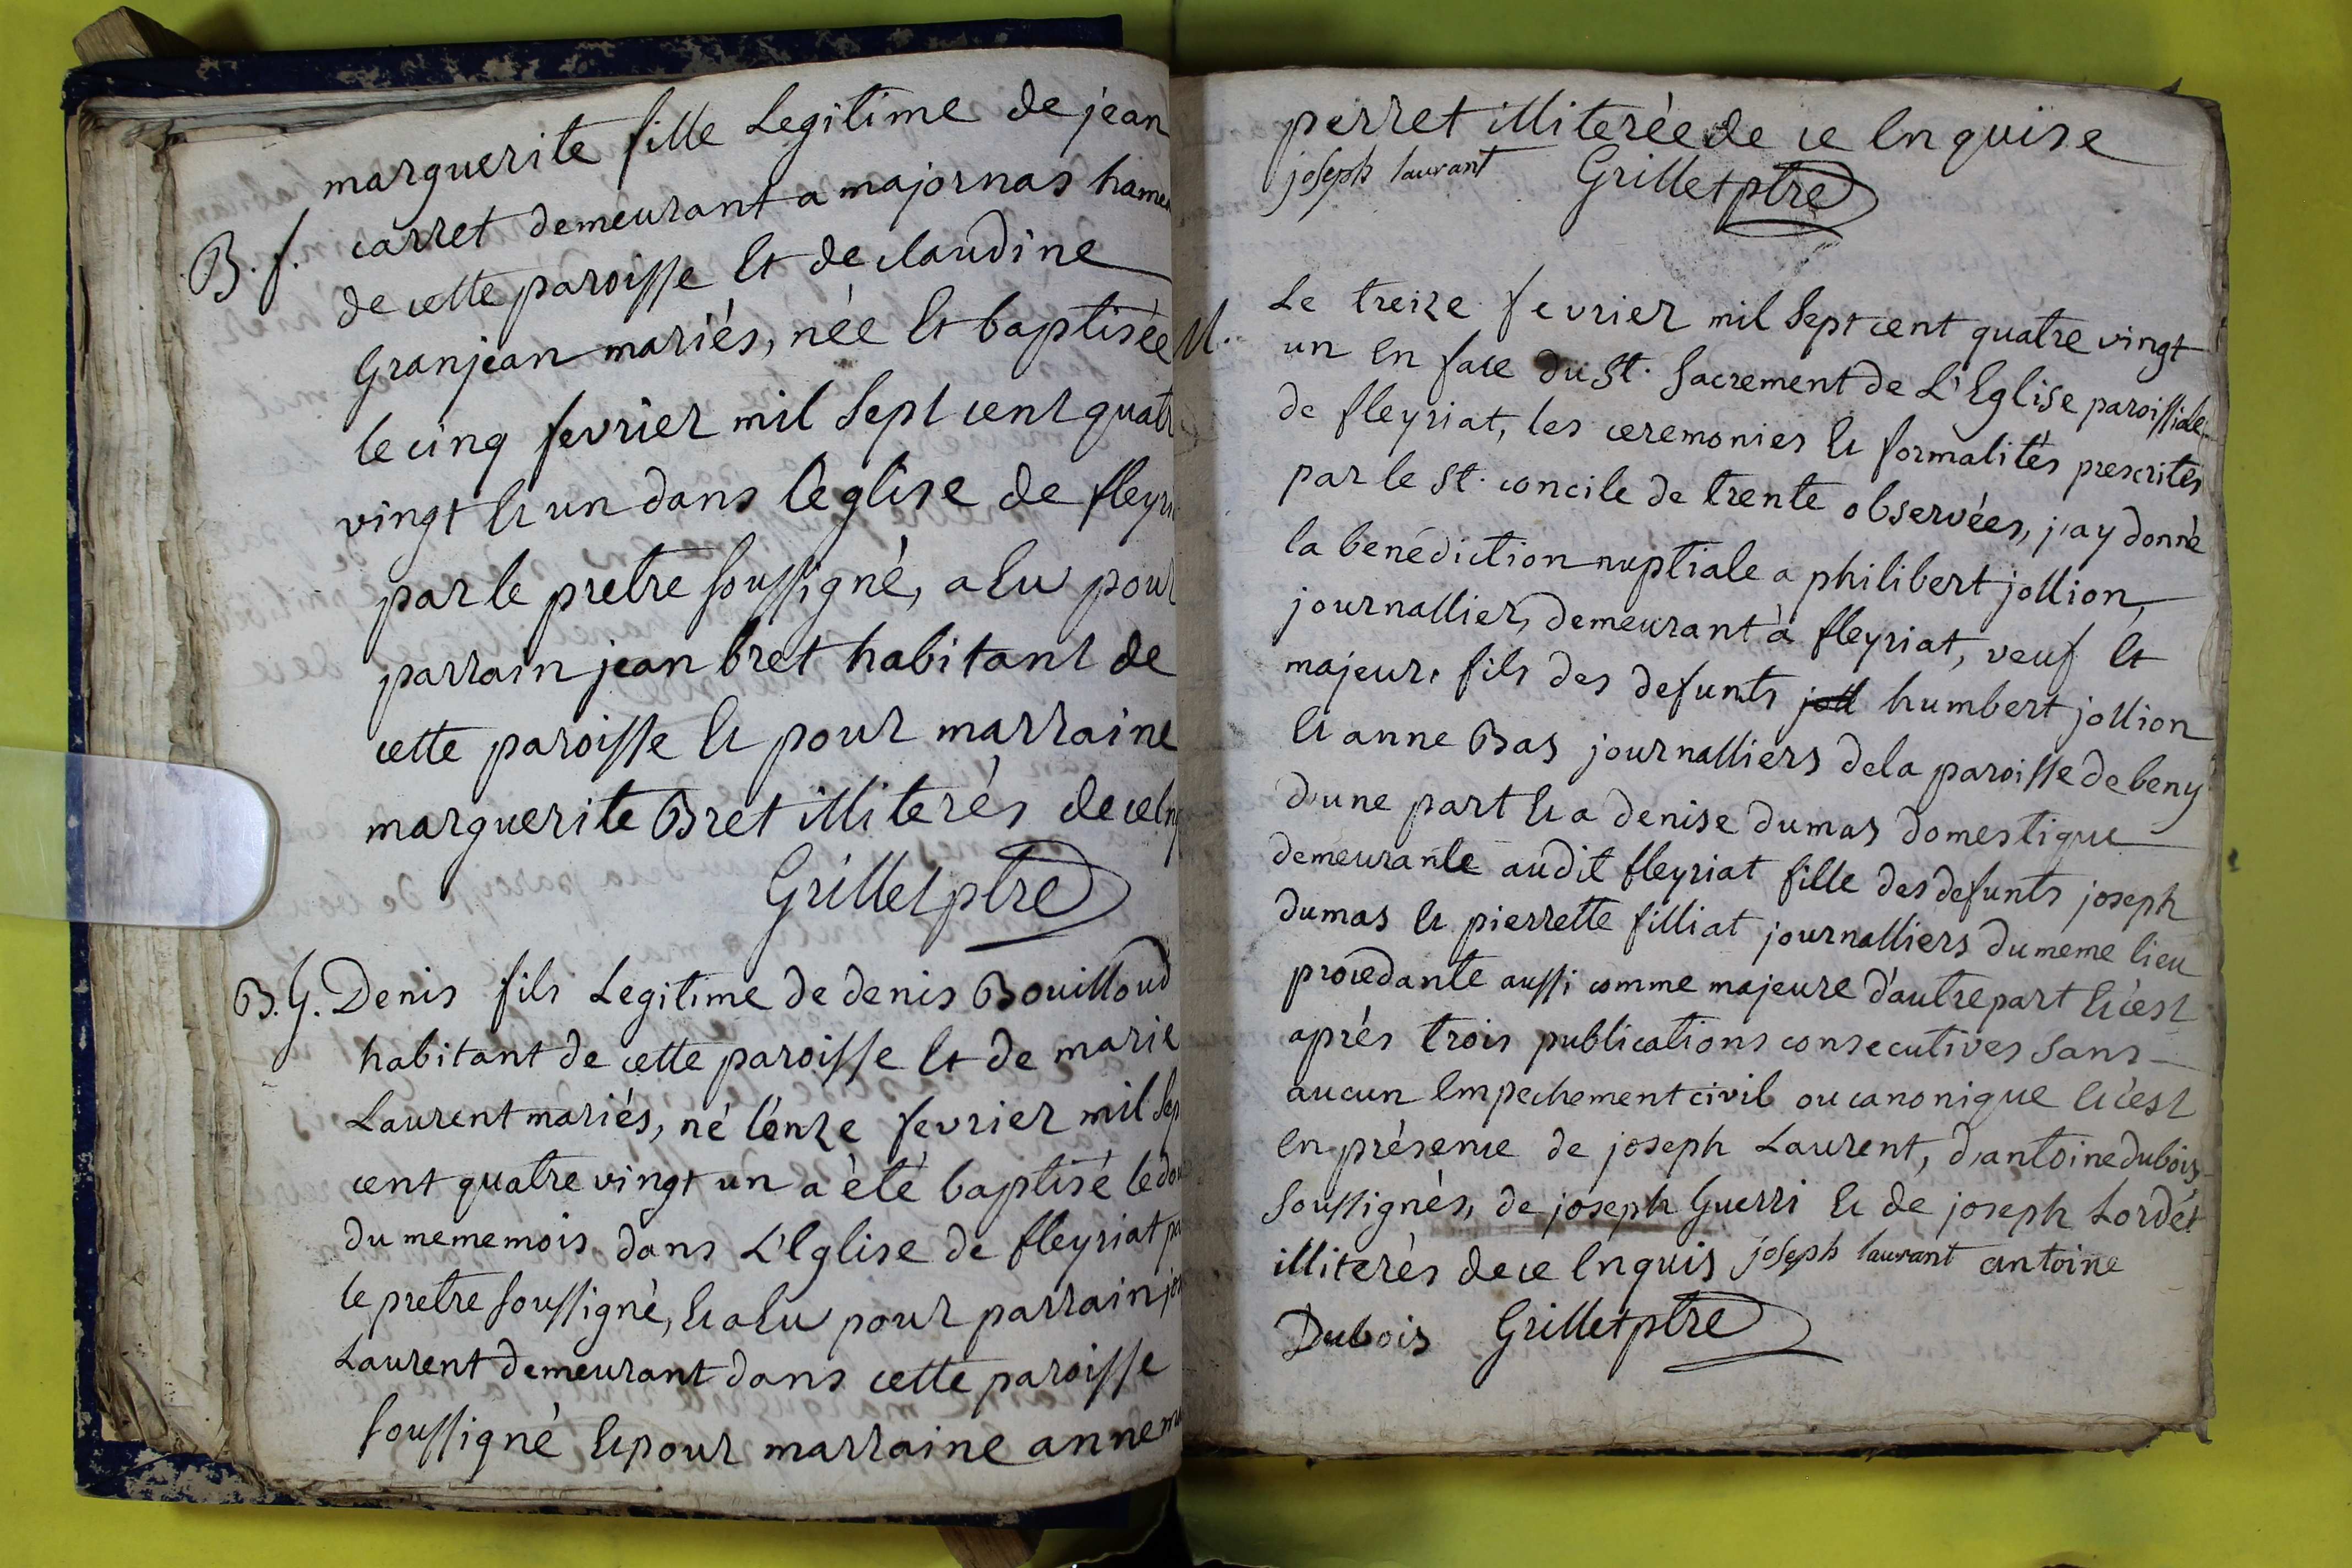 marguerite fille Legitime de jean
B. f. carret demeurant a majornas hame
de cette paroisse Et de claudine
Granjean mariés, née Et baptisée
le cinq fevrier mil Sept cent quatr
vingt Et un dans l'eglise de fleyri
par le pretre soussigné, a Eu pour
parrain jean bret habitant de
cette paroisse Et pour marraine
marguerite Bret illiterés de ce Enq
Grillet ptre
B. G. Denis fils Legitime de denis Bouilloud
habitant de cette paroisse Et de marie
Laurent mariés, né l'onze fevrier mil Sep
cent quatre vingt un a été baptisé le dou
du meme mois dans L'Eglise de fleyriat pa
le pretre soussigné, Et a Eu pour parrain jos
Laurent demeurant dans cette paroisse
soussigné Et pour marraine anne
perret illiterée de ce Enquise
joseph laurant Grillet ptre
M. Le treize fevrier mil Sept cent quatre vingt
un En face du St. Sacrement de L'Eglise paroissiale
de fleyriat, les ceremonies Et formalités prescrites
par le St. concile de trente observées, j'ay donné
la benédiction nuptiale a philibert jollion,
journallier, demeurant à fleyriat, veuf Et
majeur, fils des defunts joll humbert jollion
Et anne Bas journalliers de la paroisse de beny
d'une part Et a denise dumas domestique
demeurante audit fleyriat fille des defunts joseph
dumas Et pierrette filliat journalliers du meme lieu
procedante aussi comme majeure d'autre part Et c'est
après trois publications consecutives sans
aucun Empechement civil ou canonique Et c'est
En présence de joseph Laurent, d'antoine dubois
soussignés, de joseph Guerri Et de joseph Lordét
illiterés de ce Enquis joseph laurant antoine
Dubois Grillet ptre